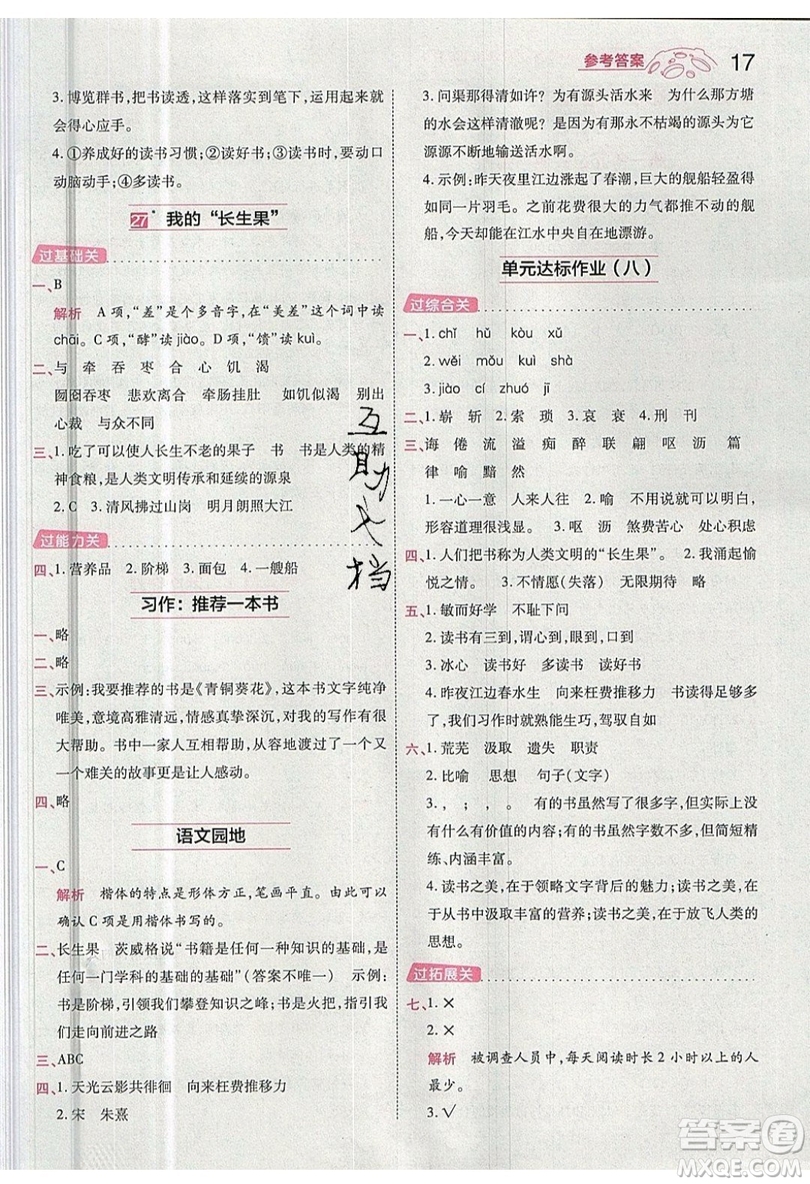 参考答案
17
3. 博览群书,把书读透,这样落实到笔下,运用起来就
会得心应手。
4. ①养成好的读书习惯;②读书时,要动口动脑动手;④多读书。
27* 我的“长生果”
过基础关
一、B
解析 A项,“差”是个多音字,在“美差”这个词中读
chāi。C项,“酵”读jiào。D项,“馈”读kuì。
二、与 牵 吞 枣 合 心 饥 渴
囫囵吞枣 悲欢离合 牵肠挂肚 如饥似渴 别出
心裁 与众不同
三、1. 吃了可以使人长生不老的果子 书 书是人类的精
神食粮,是人类文明传承和延续的源泉
2. C 3. 清风拂过山岗 明月朗照大江
过能力关
四、1. 营养品 2. 阶梯 3. 面包 4. 一艘船
习作:推荐一本书
一、略
二、略
三、示例:我要推荐的书是《青铜葵花》,这本书文字纯净
唯美,意境高雅清远,情感真挚深沉,对我的写作有很
大帮助。书中一家人互相帮助,从容地渡过一个又一
个难关的故事更是让人感动。
四、略
语文园地
一、C
解析 楷体的特点是形体方正,笔画平直。由此可以
确认C项是用楷体书写的。
二、长生果 茨威格说“书籍是任何一种知识的基础,是
任何一门学科的基础的基础”(答案不唯一) 示例:
书是阶梯,帮助我们攀登知识之峰;书是火把,照亮我
们走向前进之路
三、ABC
四、1. 天光云影共徘徊 向来枉费推移力
2. 宋 朱熹
3. 问渠那得清如许?为有源头活水来 为什么那方塘
的水会这样清澈呢?是因为有那永不枯竭的源头为它
源源不断地输送活水啊。
4. 示例:昨天夜里江边涨起了春潮,巨大的舰船轻盈得
如同一片羽毛。以前花费很大的力气都推不动的舰
船,今天却能在江水中央自在地漂游。
单元达标作业(八)
过综合关
一、1. chǐ hǔ kòu xǔ
2. wěi mǒu kuì shà
3. jiào cí zhuó jī
二、1. 崭 斩 2. 索 琐 3. 哀 衰 4. 刑 刊
三、诲 倦 流 溢 痴 醉 联 翩 呕 沥 篇
律 喻 黯 然
1. 一心一意 人来人往 2. 喻 不用说就可以明白,
形容道理很明显。 3. 呕 沥 煞费苦心 处心积虑
四、1. 人们把书称为人类文明的“长生果”。 2. 我涌起愉
悦之情。 3. 不情愿(失落) 无限期待 略
五、1. 敏而好学 不耻下问
2. 读书有三到,谓心到,眼到,口到
3. 冰心 读书好 多读书 读好书
4. 昨夜江边春水生 向来枉费推移力 书读得足够多
了,我们习作时就熟能生巧,驾驭自如
六、1. 荒芜 汲取 遗失 职责
2. 比喻 思想 句子(文字)
3. , ; , 。 有的书虽然写了很多字,但实际上没
有什么有价值的内容;有的书虽然字数不多,但简短精
练、内涵丰富。
4. 读书之美,在于领略文字背后的魅力;读书之美,在
于从中吸取丰富的营养;读书之美,在于放飞人类的
思想。
过拓展关
七、1. ×
2. ×
解析 被调查人员中,每天阅读时长2小时以上的人
最少。
3. √
互助文档
答案圈
MXQE.COM